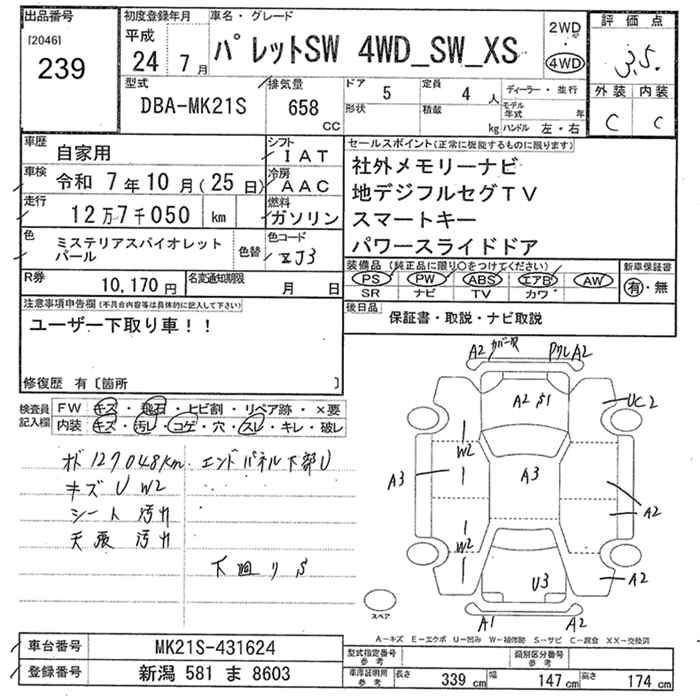 出品番号
[2046]
239
初度登録年月
平成
24年7月
車名・グレード
パレットSW 4WD_SW_XS
2WD
・
4WD
評価点
3.5.
外装 内装
C C
型式
DBA-MK21S
排気量
658
CC
ドア 5
定員 4 人
形状
積載 kg
ディーラー・並行
モデル年式 年
ハンドル 左・右
車歴
自家用
シフト
IAT
車検 令和 7年 10月(25日)
冷房
AAC
走行
12万7千050 km
燃料
ガソリン
色
ミステリアスバイオレット
パール
色替
色コード
ZJ3
R券
10,170円
名変通知期限
月 日
セールスポイント(正常に機能するものに限ります)
社外メモリーナビ
地デジフルセグTV
スマートキー
パワースライドドア
装備品(純正品に限り○をつけてください)
PS PW ABS エアB AW
SR ナビ TV カワ
新車保証書
有・無
後日品
保証書・取説・ナビ取説
注意事項申告欄(不具合内容等は具体的に記入して下さい)
ユーザー下取り車!!
修復歴 有〔箇所 〕
検査員
記入欄
FW キズ・飛石・ヒビ割・リペア跡・×要
内装 キズ・汚レ・コゲ・穴・スレ・キレ・破レ
オド127048km エンドパネル下部U
キズ U W2
シート 汚れ
天張 汚れ
下廻り S
A2 A2
A2 S1
UC2
W2
A3
A3
A2
W2
U3
A2
A1 A2
スペア
A-キズ E-エクボ U-凹み W-補修跡 S-サビ C-腐食 XX-交換済
車台番号 MK21S-431624
登録番号 新潟 581 ま 8603
型式指定番号
参考
類別区分番号
参考
車庫証明用
参考
長さ 339 cm
幅 147 cm
高さ 174 cm